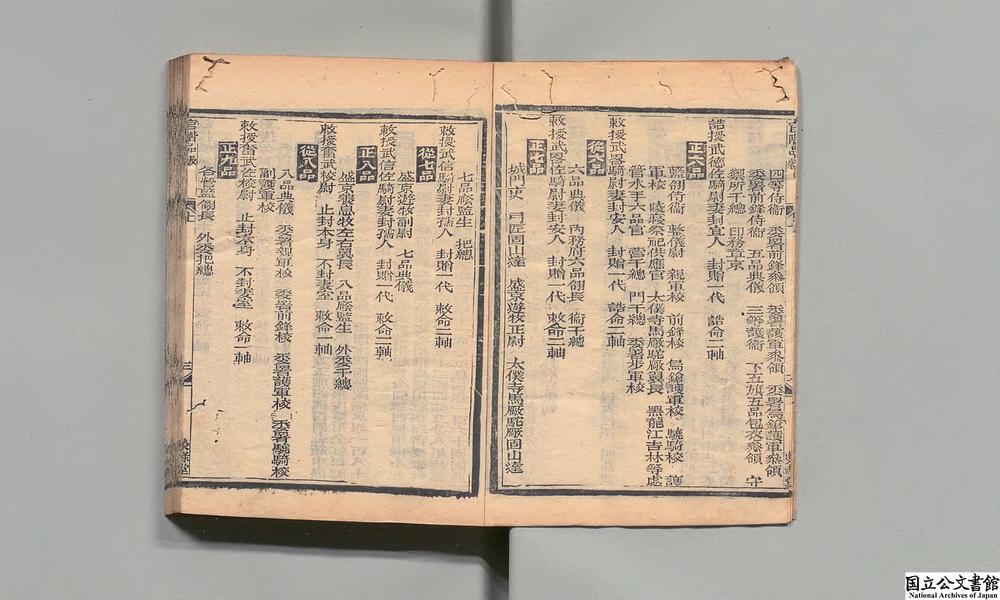 四等侍衞　委署前鋒叅領　委署護軍叅領　委署鳥鎗護軍叅領
委署前鋒侍衞　五品典儀　三等護衞　下五旗五品包衣叅領　守
禦所千總　印務章京
誥授武德佐騎尉妻封宜人　封贈一代　誥命二軸
正六品
藍翎侍衞　整儀尉　親軍校　前鋒校　鳥鎗護軍校　驍騎校　護
軍校　陵寢祭祀供應官　太僕寺馬廠駝廠翼長　黑龍江吉林等處
管水手六品官　營千總　門千總　委署步軍校
敕授武畧騎尉妻封安人　封贈一代　誥命二軸
從六品
六品典儀　內務府六品翎長　衞千總
敕授武畧佐騎尉妻封安人　封贈一代　敕命二軸
正七品
城門吏　弓匠固山達　盛京遊牧正尉　太僕寺馬廠駝廠固山達
七品廕監生　把總
敕授武信騎尉妻封孺人　封贈一代　敕命二軸
從七品
盛京遊牧副尉　七品典儀
敕授武信佐騎尉妻封孺人　封贈一代　敕命二軸
正八品
盛京養息牧左右翼長　八品廕監生　外委千總
敕授奮武校尉　止封本身　不封妻室　敕命一軸
從八品
八品典儀　委署親軍校　委署前鋒校　委署護軍校　委署驍騎校
副護軍校
敕授奮武佐校尉　止封本身　不封妻室　敕命一軸
正九品
各營藍翎長　外委把總
国立公文書館
National Archives of Japan